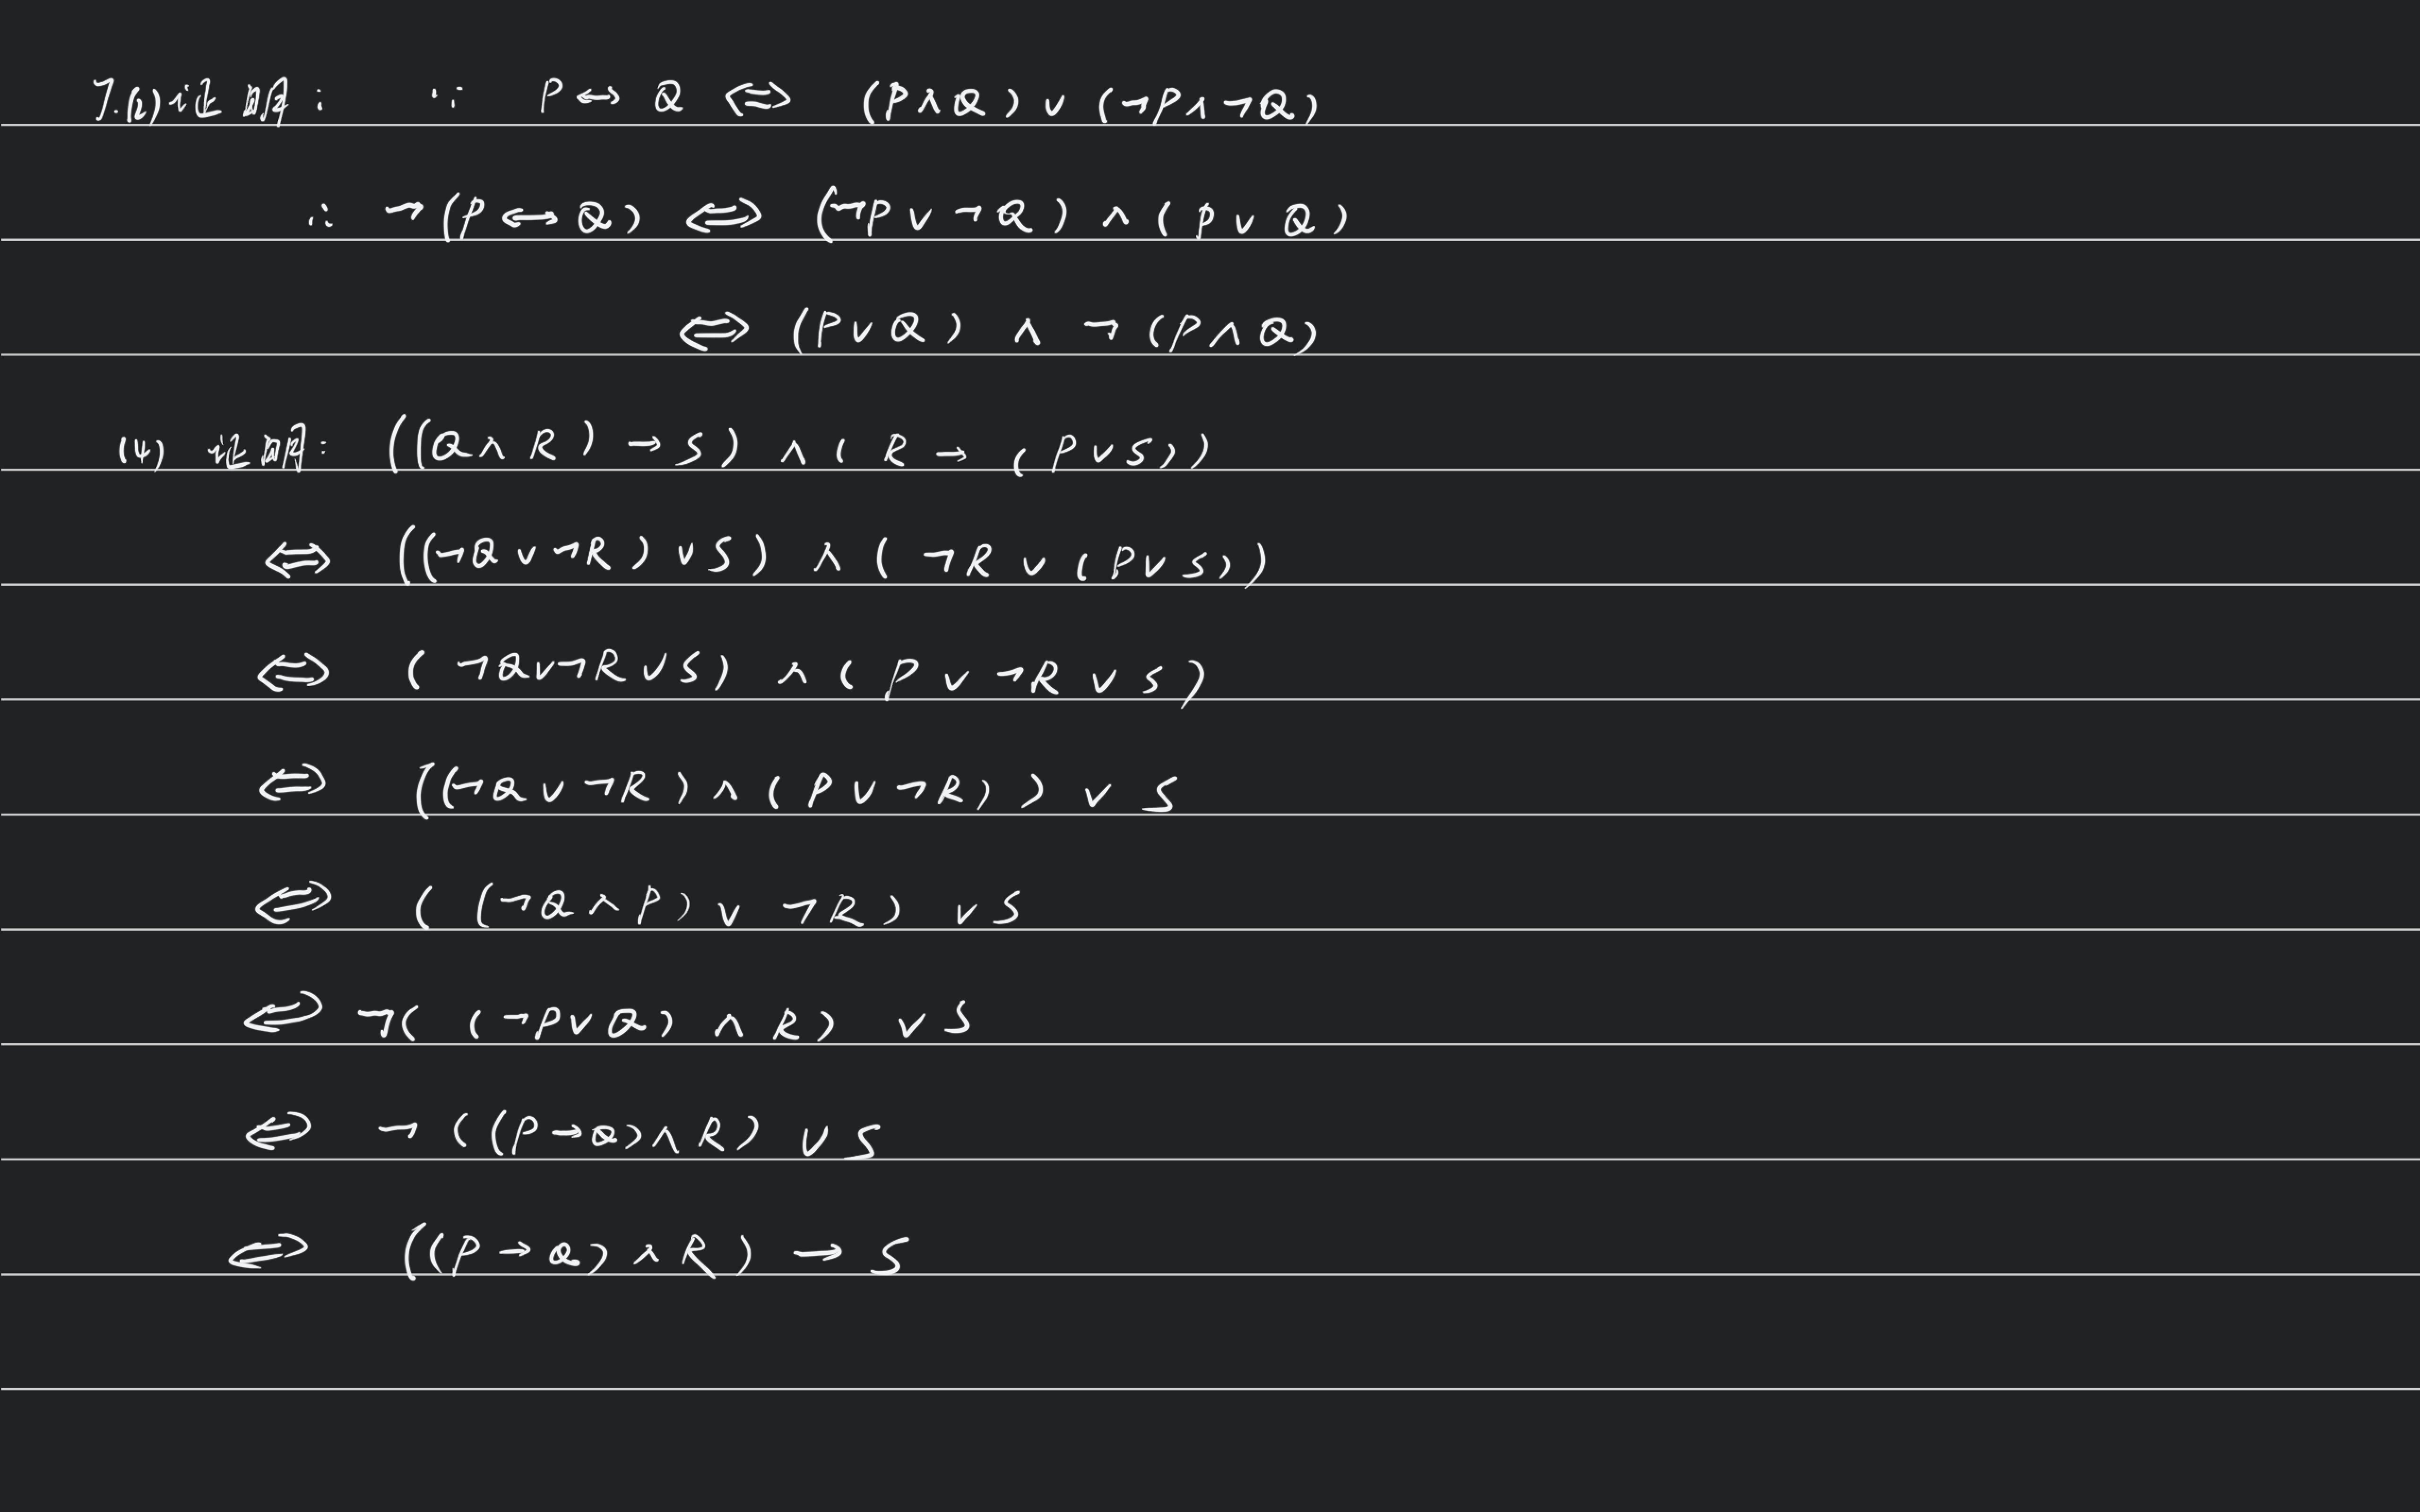 7.(2)证明: ∵ P↔Q ⇔ (P∧Q)∨(¬P∧¬Q)
∴ ¬(P↔Q) ⇔ (¬P∨¬Q)∧(P∨Q)
⇔ (P∨Q)∧¬(P∧Q)
(4) 证明: ((Q∧R)→S)∧(R→(P∨S))
⇔ ((¬Q∨¬R)∨S)∧(¬R∨(P∨S))
⇔ (¬Q∨¬R∨S)∧(P∨¬R∨S)
⇔ ((¬Q∨¬R)∧(P∨¬R))∨S
⇔ ((¬Q∧P)∨¬R)∨S
⇔ ¬((¬P∨Q)∧R)∨S
⇔ ¬((P→Q)∧R)∨S
⇔ ((P→Q)∧R)→S